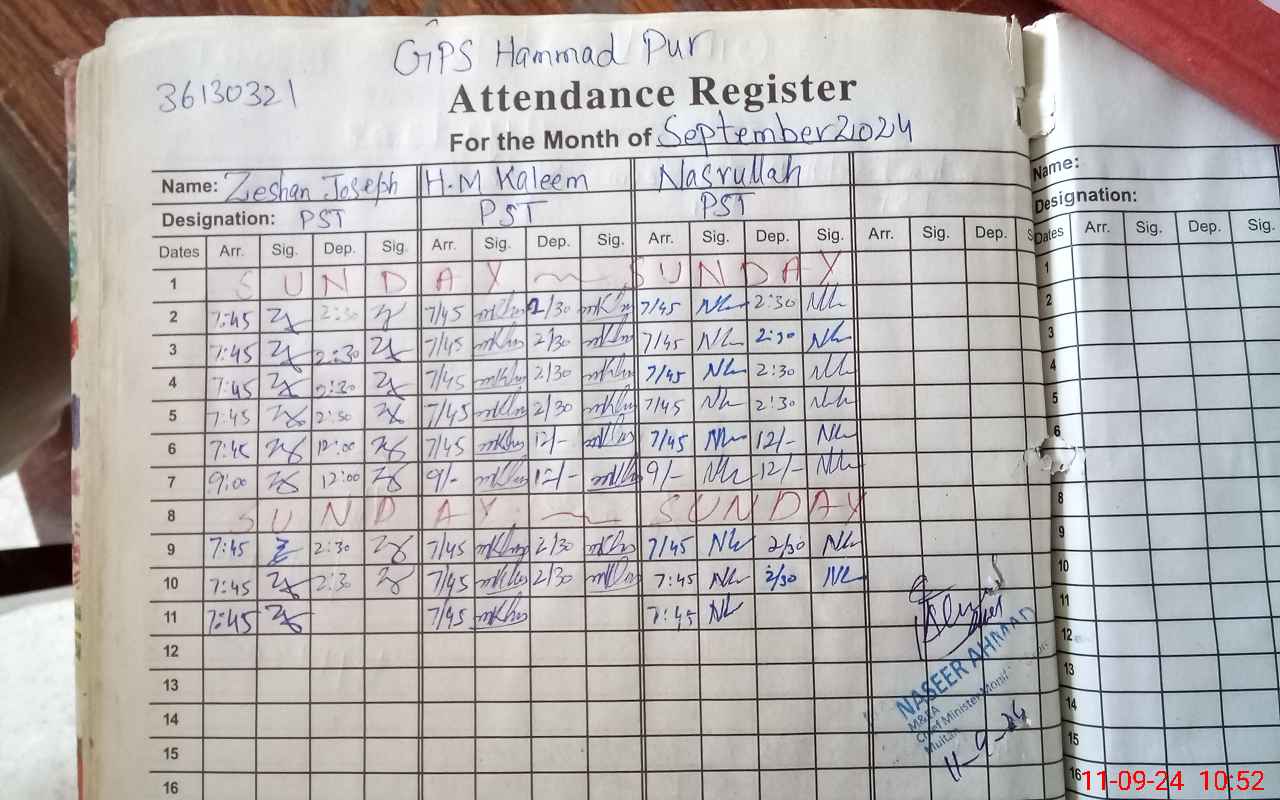 GPS Hammad Pur
36130321
Attendance Register
For the Month of September 2024
Name: Zeshan Joseph H.M Kaleem Nasrullah
Designation: PST PST PST
Dates Arr. Sig. Dep. Sig. Arr. Sig. Dep. Sig. Arr. Sig. Dep. Sig. Arr. Sig. Dep.
1 SUNDAY SUNDAY
2 7:45 2:30 7/45 2/30 7/45 2:30
3 7:45 2:30 7/45 2/30 7/45 2:30
4 7:45 2:30 7/45 2/30 7/45 2:30
5 7:45 2:30 7/45 2/30 7/45 2:30
6 7:45 12:00 7/45 12/- 7/45 12/-
7 9:00 12:00 9/- 12/- 9/- 12/-
8 SUNDAY SUNDAY
9 7:45 2:30 7/45 2/30 7/45 2/30
10 7:45 2:30 7/45 2/30 7:45 2/30
11 7:45 7/45 7:45
12
13
14
15
16
NASEER AHMAD
M&EA
Chief Minister Monit
Multan
11-9-24
Name:
Designation:
Dates Arr. Sig. Dep. Sig.
1
2
3
4
5
6
8
9
10
11
12
13
14
15
16
11-09-24 10:52